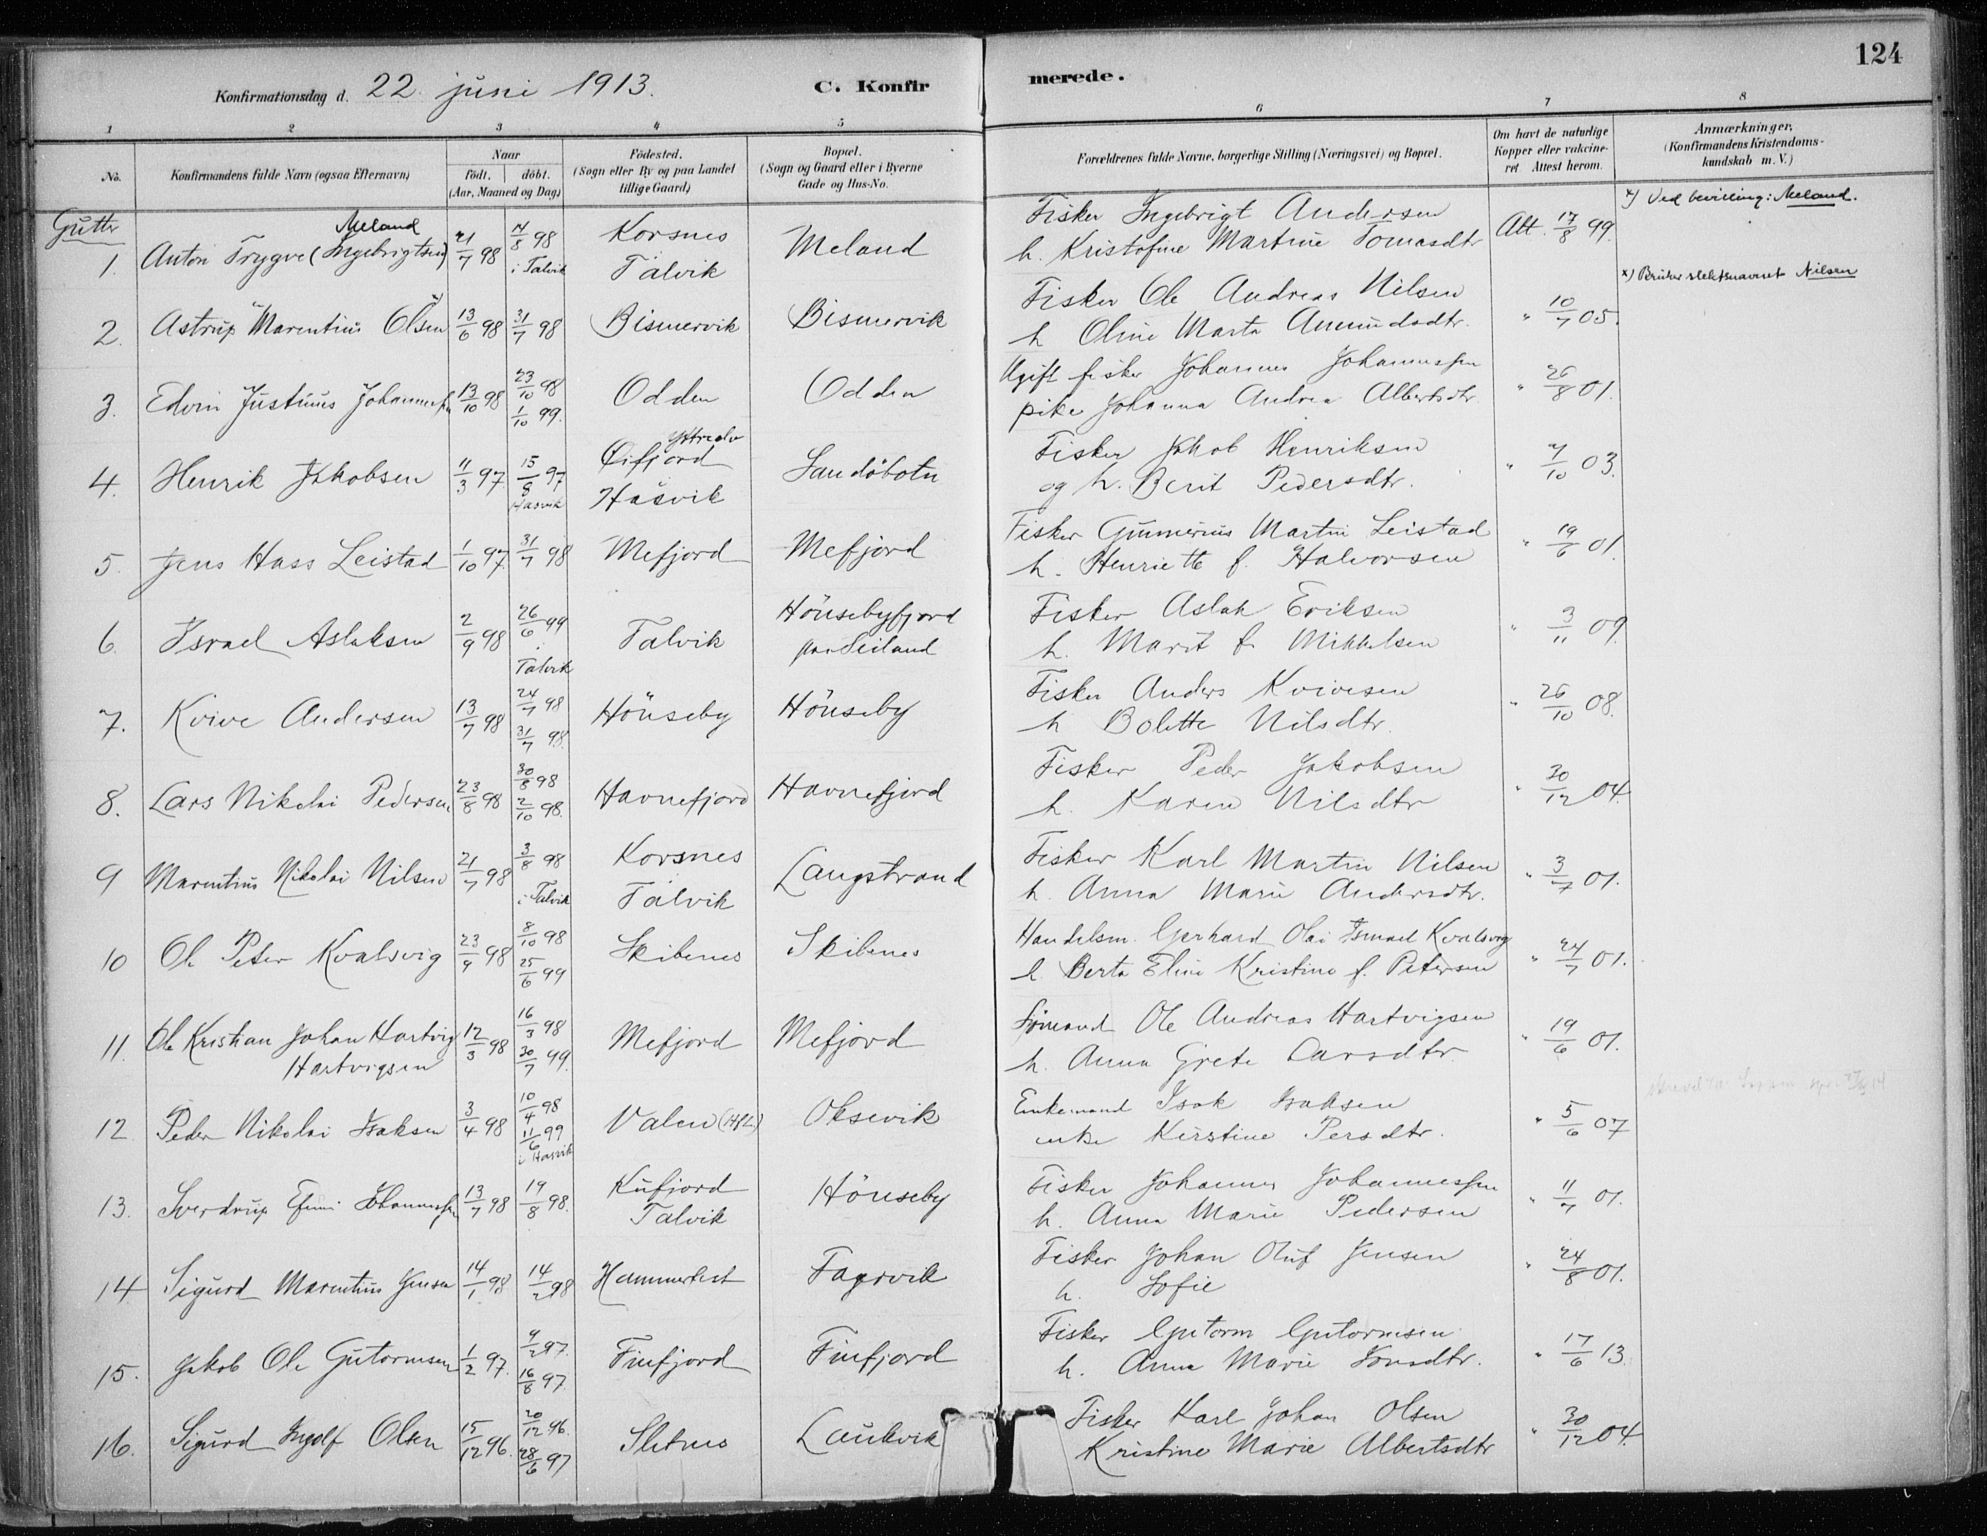 124
Konfirmationsdag d. 22. juni 1913. C. Konfirmerede.
1 2 3 4 5 6 7 8
No. Konfirmandens fulde Navn (ogsaa Efternavn) Naar födt. döbt. (Aar, Maaned og Dag) Födested. (Sogn eller By og paa Landet tillige Gaard) Bopæl. (Sogn og Gaard eller i Byerne Gade og Hus-No. Forældrenes fulde Navne, borgerlige Stilling (Næringsvei) og Bopæl. Om havt de naturlige Kopper eller vaccineret. Attest herom. Anmærkninger, (Konfirmandens Kristendomskundskab m. V.)
Gutter
Meland
1. Anton Trygve (Ingebrigtsen) 21/7 98 98 i Talvik Korsnes Talvik Meland Fisker Ingebrigt Andersen h. Kristofine Martine Tomasdtr Att. 17/8 99. x) Ved bevilling: Meland.
2. Astrup Marentius Olsen x) 13/6 98 31/7 98 Bismervik Bismervik Fisker Ole Andreas Nilsen h Oline Marta Amundsdtr. " 10/7 05. x) Bruker slektsnavnet Nilsen
3. Edvin Justinus Johannessen 13/10 98 23/10 98 1/10 99. Odden Odden Ugift fisker Johannes Johannessen pike Johanna Andrea Albertsdtr. " 26/8 01.
4. Henrik Jakobsen 11/3 97 15/8 97 Hasvik Øifjord Hasvik Sandöbotn Fisker Jakob Henriksen og h. Berit Pedersdtr. " 03.
5. Jens Hass Leistad 1/10 97. 31/7 98 Mefjord Mefjord Fisker Gunnerius Martin Leistad h. Henriette f. Halvorsen " 19/6 01.
6. Israel Aslaksen 2/9 98 26/6 99 i Talvik Talvik Hönsebyfjord paa Seiland Fisker Aslak Eriksen h. Marit f. Mikkelsen " 3/11 09
7. Kvive Andersen 13/7 98 24/7 98 31/7 98. Hönseby Hönseby Fisker Anders Kvivesen h Bolette Nilsdtr. " 26/10 08.
8. Lars Nikolai Pedersen 23/8 98 30/8 98 2/10 98. Havnefjord Havnefjord Fisker Peder Jakobsen h. Karen Nilsdtr " 30/12 04.
9 Marentius Nikolai Nilsen 21/7 98 3/8 98 i Talvik Korsnes Talvik Langstrand Fisker Karl Martin Nilsen h. Anna Marie Andersdtr. " 3/7 01.
10 Ole Peter Kvalsvig 23/9 98 8/10 98 25/6 99 Skibenes Skibenes Handelsm. Gerhard Olai Ismael Kvalsvig h. Berta Eline Kristine f. Petersen " 24/7 01.
11. Ole Kristian Johan Hartvig Hartvigsen 12/3 98 16/3 98 30/7 99. Mefjord Mefjord Sömand Ole Andreas Hartvigsen h. Anna Grete Larsdtr. " 19/6 01.
12. Peder Nikolai Isaksen 3/4 98 10/4 98 11/6 99 i Hasvik Valen Oksevik Enkemand Isak Isaksen enke Kirstine Persdtr. " 5/6 07
13. Sverdrup Johannessen 13/7 98 19/8 98. Kufjord Talvik Hönseby Fisker Johannes Johannessen h. Anna Marie Pedersen " 11/7 01.
14 Sigurd Marentius Jensen 14/1 98 14/2 98 Hammerfest Fagervik Fisker Johan Oluf Jensen h. Sofie " 24/8 01.
15. Jakob Ole Gutormsen 1/2 97. 9/2 97. 16/8 97. Finfjord Finfjord Fisker Gutorm Gutormsen h. Anna Marie Jonsdtr. " 17/6 13.
16. Sigurd Ingolf Olsen 15/12 96. 20/12 96. 28/6 97 Sletnes Laukvik Fisker Karl Johan Olsen Kristine Marie Albertsdtr " 30/12 04.